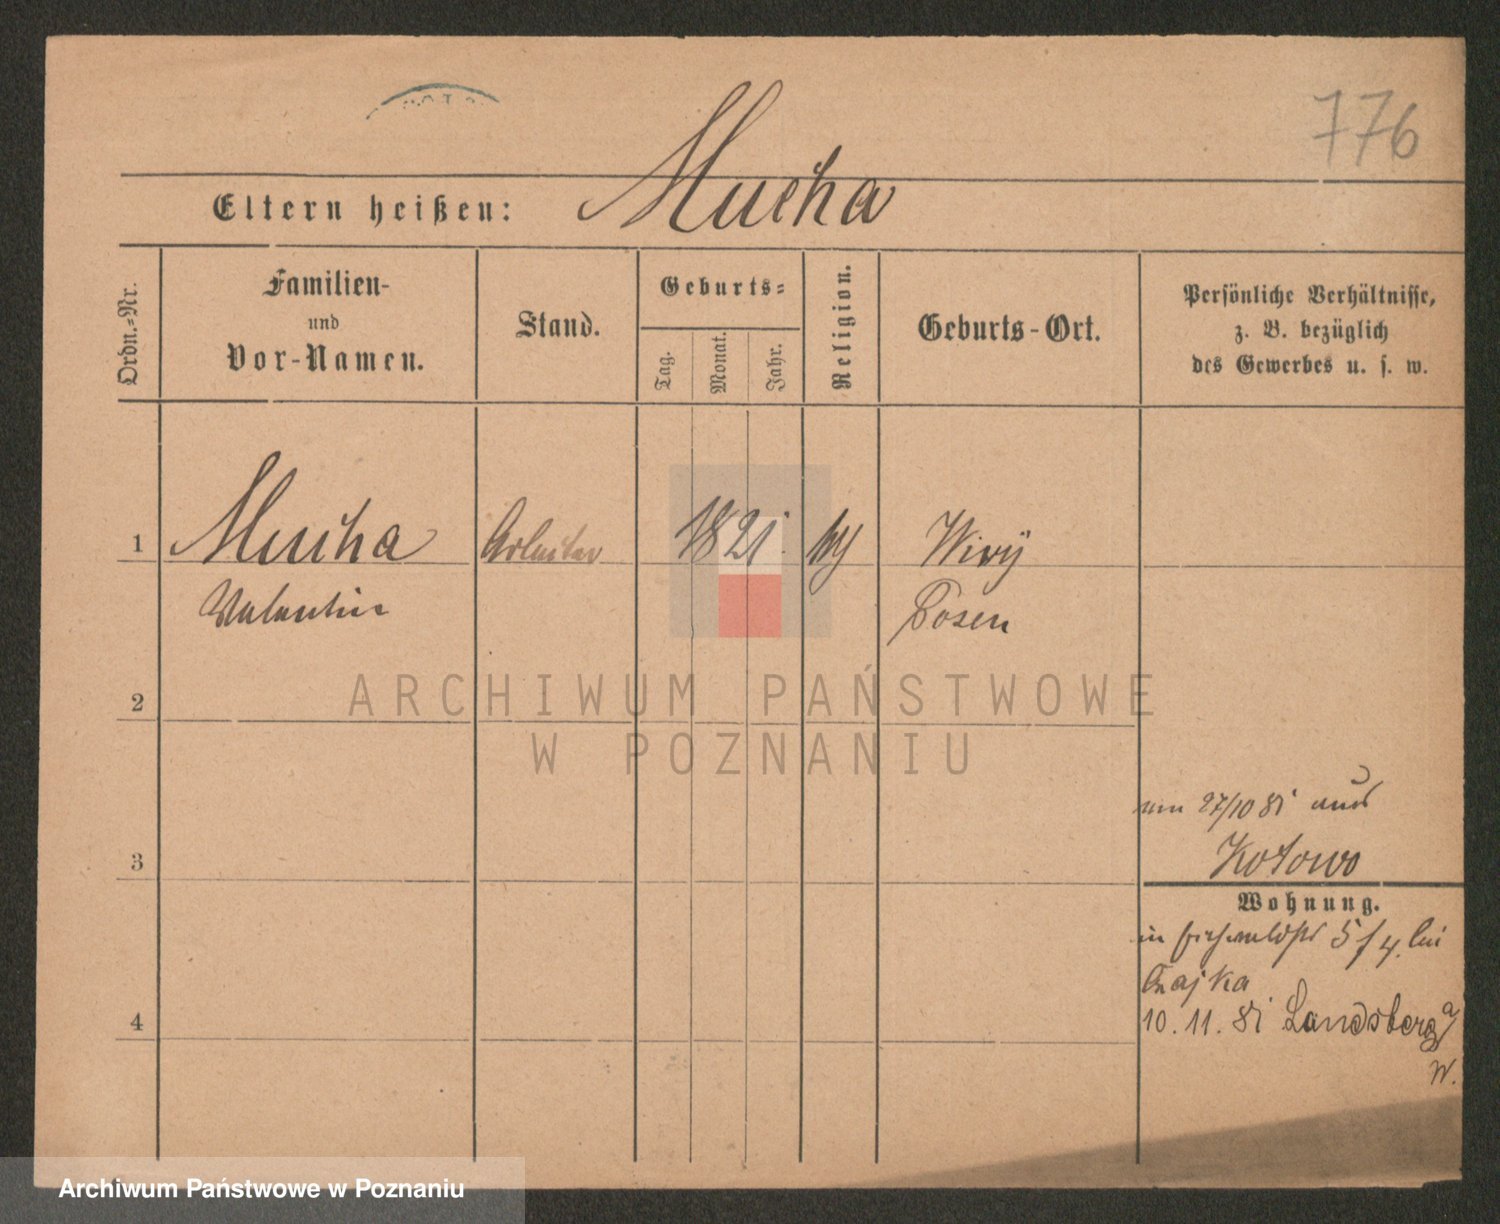 776
Eltern heißen: Mucha
Ordn.-Nr.
Familien-
und
Vor-Namen.
Stand.
Geburts-
Tag.
Monat.
Jahr.
Religion.
Geburts-Ort.
Persönliche Verhältnisse,
z. B. bezüglich
des Gewerbes u. s. w.
1 Mucha Arbeiter 1821 Wiry
Valentin Posen
ARCHIWUM PAŃSTWOWE
W POZNANIU
2
3
27/10 81 aus
Kotowo
Wohnung.
in 5/4 bei
10. 11. 81 Landsberg a/
W.
4
Archiwum Państwowe w Poznaniu